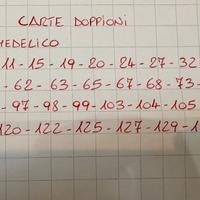 CARTE DOPPIONI
MEDELICO
11-15-19-20-24-27-32
-62-63-65-67-68-73-
-97-98-99-103-104-105
120-122-125-127-129-1